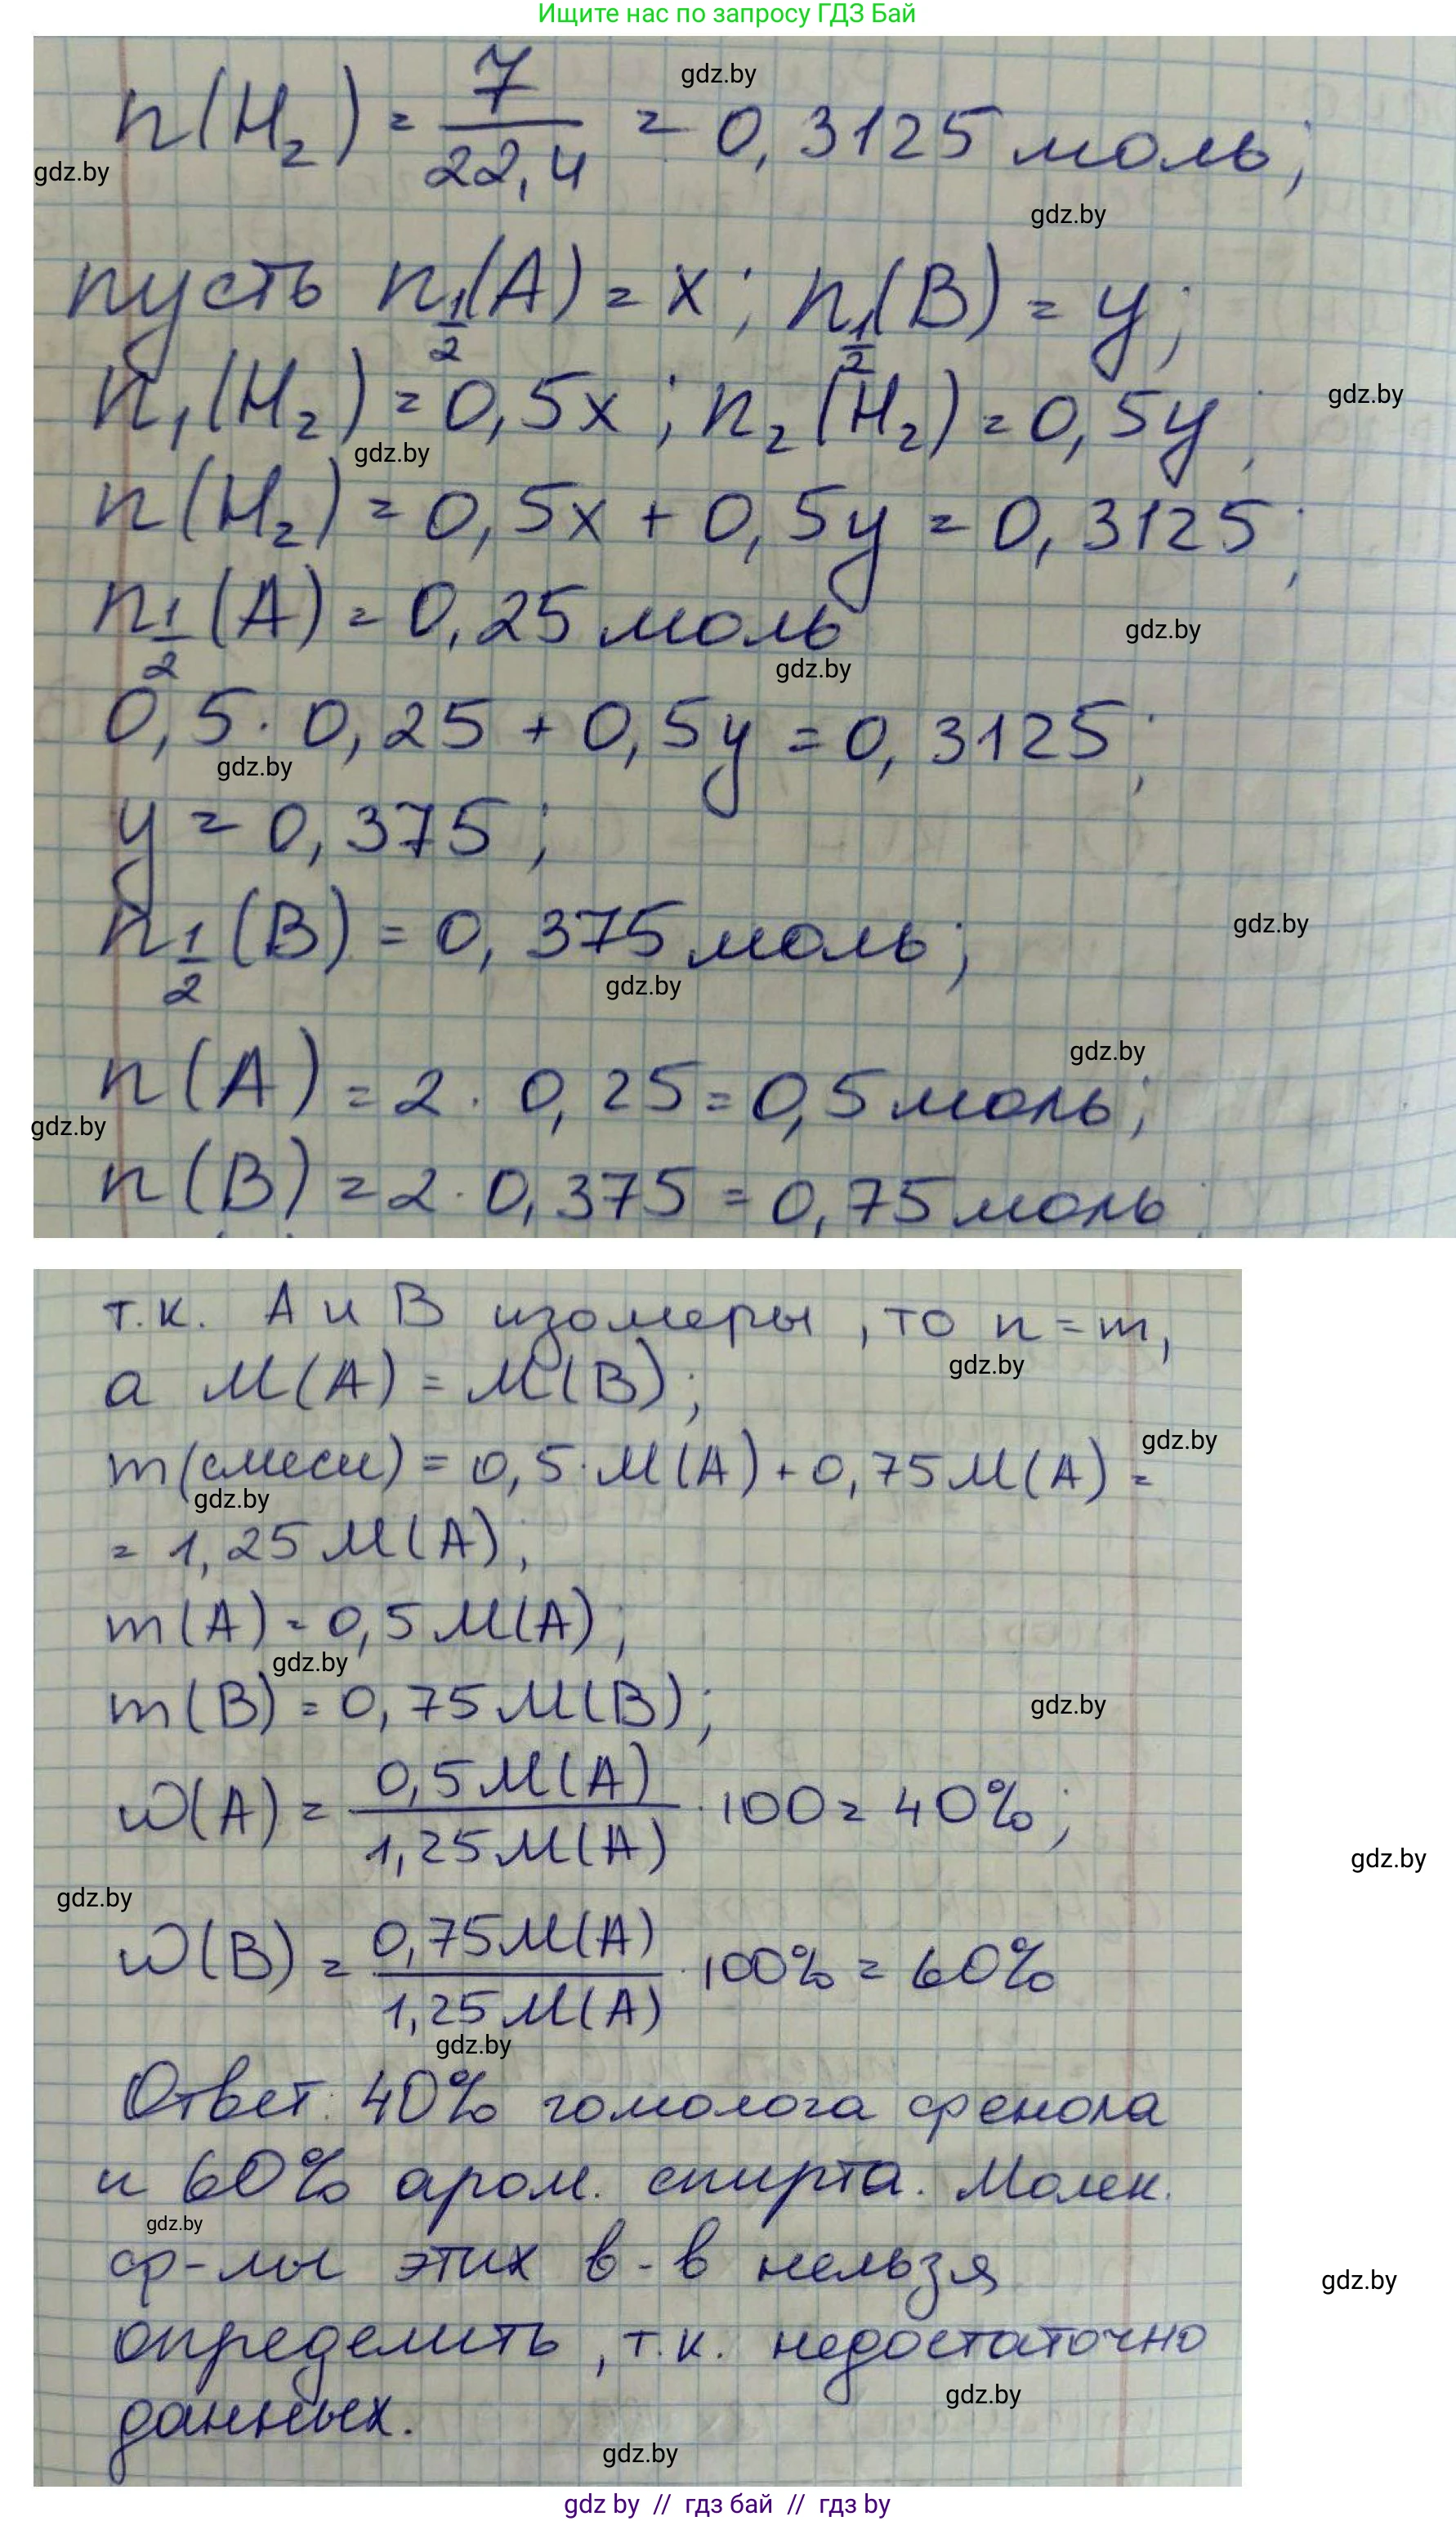 Ищите нас по запросу ГДЗ Бай
gdz.by
n(H₂) = 7/22,4 = 0,3125 моль;
gdz.by
gdz.by
пусть n½(A) = x; n½(B) = y;
n₁(H₂) = 0,5x; n₂(H₂) = 0,5y;
gdz.by
gdz.by
n(H₂) = 0,5x + 0,5y = 0,3125;
n½(A) = 0,25 моль
gdz.by
gdz.by
0,5 · 0,25 + 0,5y = 0,3125;
gdz.by
y = 0,375;
n½(B) = 0,375 моль;
gdz.by
gdz.by
gdz.by
n(A) = 2 · 0,25 = 0,5 моль;
gdz.by
n(B) = 2 · 0,375 = 0,75 моль;
т.к. A и B изомеры, то n = m,
gdz.by
а M(A) = M(B);
gdz.by
m(смеси) = 0,5 · M(A) + 0,75M(A) =
gdz.by
= 1,25 M(A);
m(A) = 0,5 M(A);
gdz.by
m(B) = 0,75 M(B);
gdz.by
w(A) = 0,5M(A)/1,25M(A) · 100 = 40%;
gdz.by
gdz.by
w(B) = 0,75M(A)/1,25M(A) · 100% = 60%
gdz.by
Ответ: 40% гомолога фенола
и 60% аром. спирта. Молек.
gdz.by
ф-лы этих в-в нельзя
gdz.by
определить, т.к. недостаточно
gdz.by
данных.
gdz.by
gdz by // гдз бай // гдз by